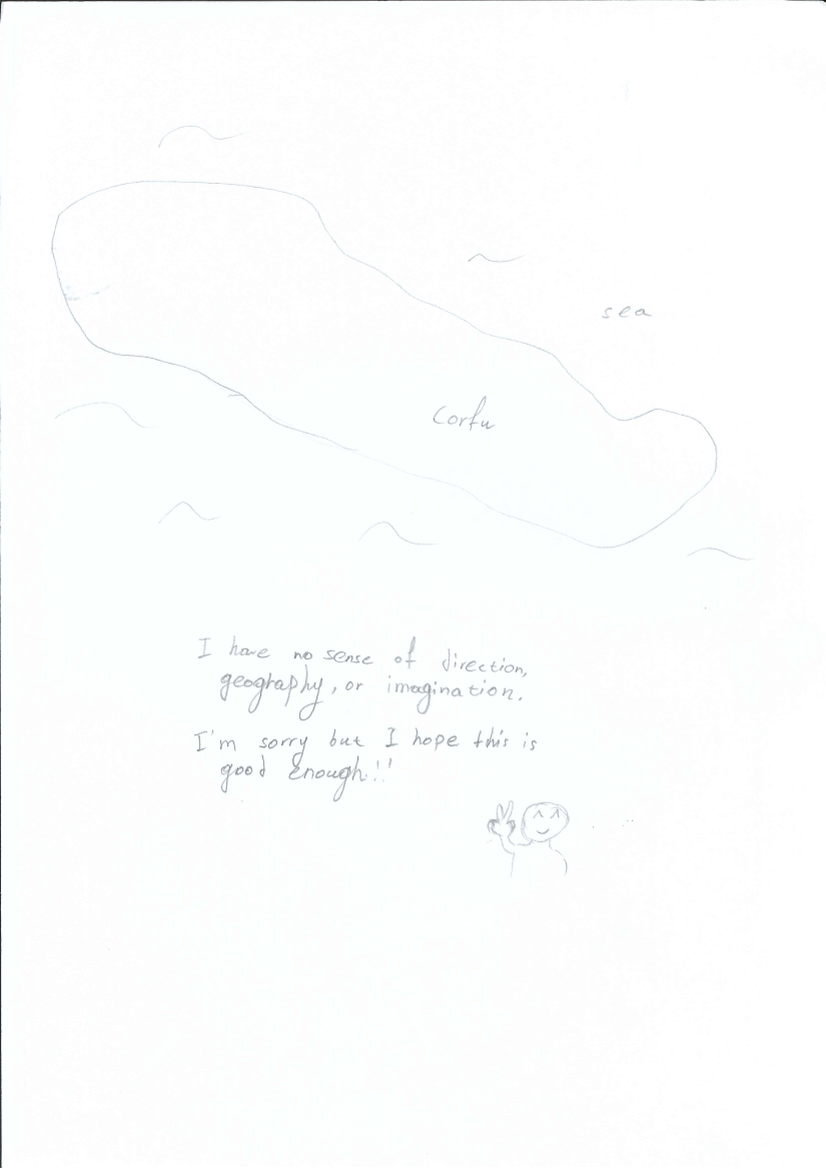 sea
Corfu
I have no sense of direction,
geography, or imagination.
I'm sorry but I hope this is
good enough!!